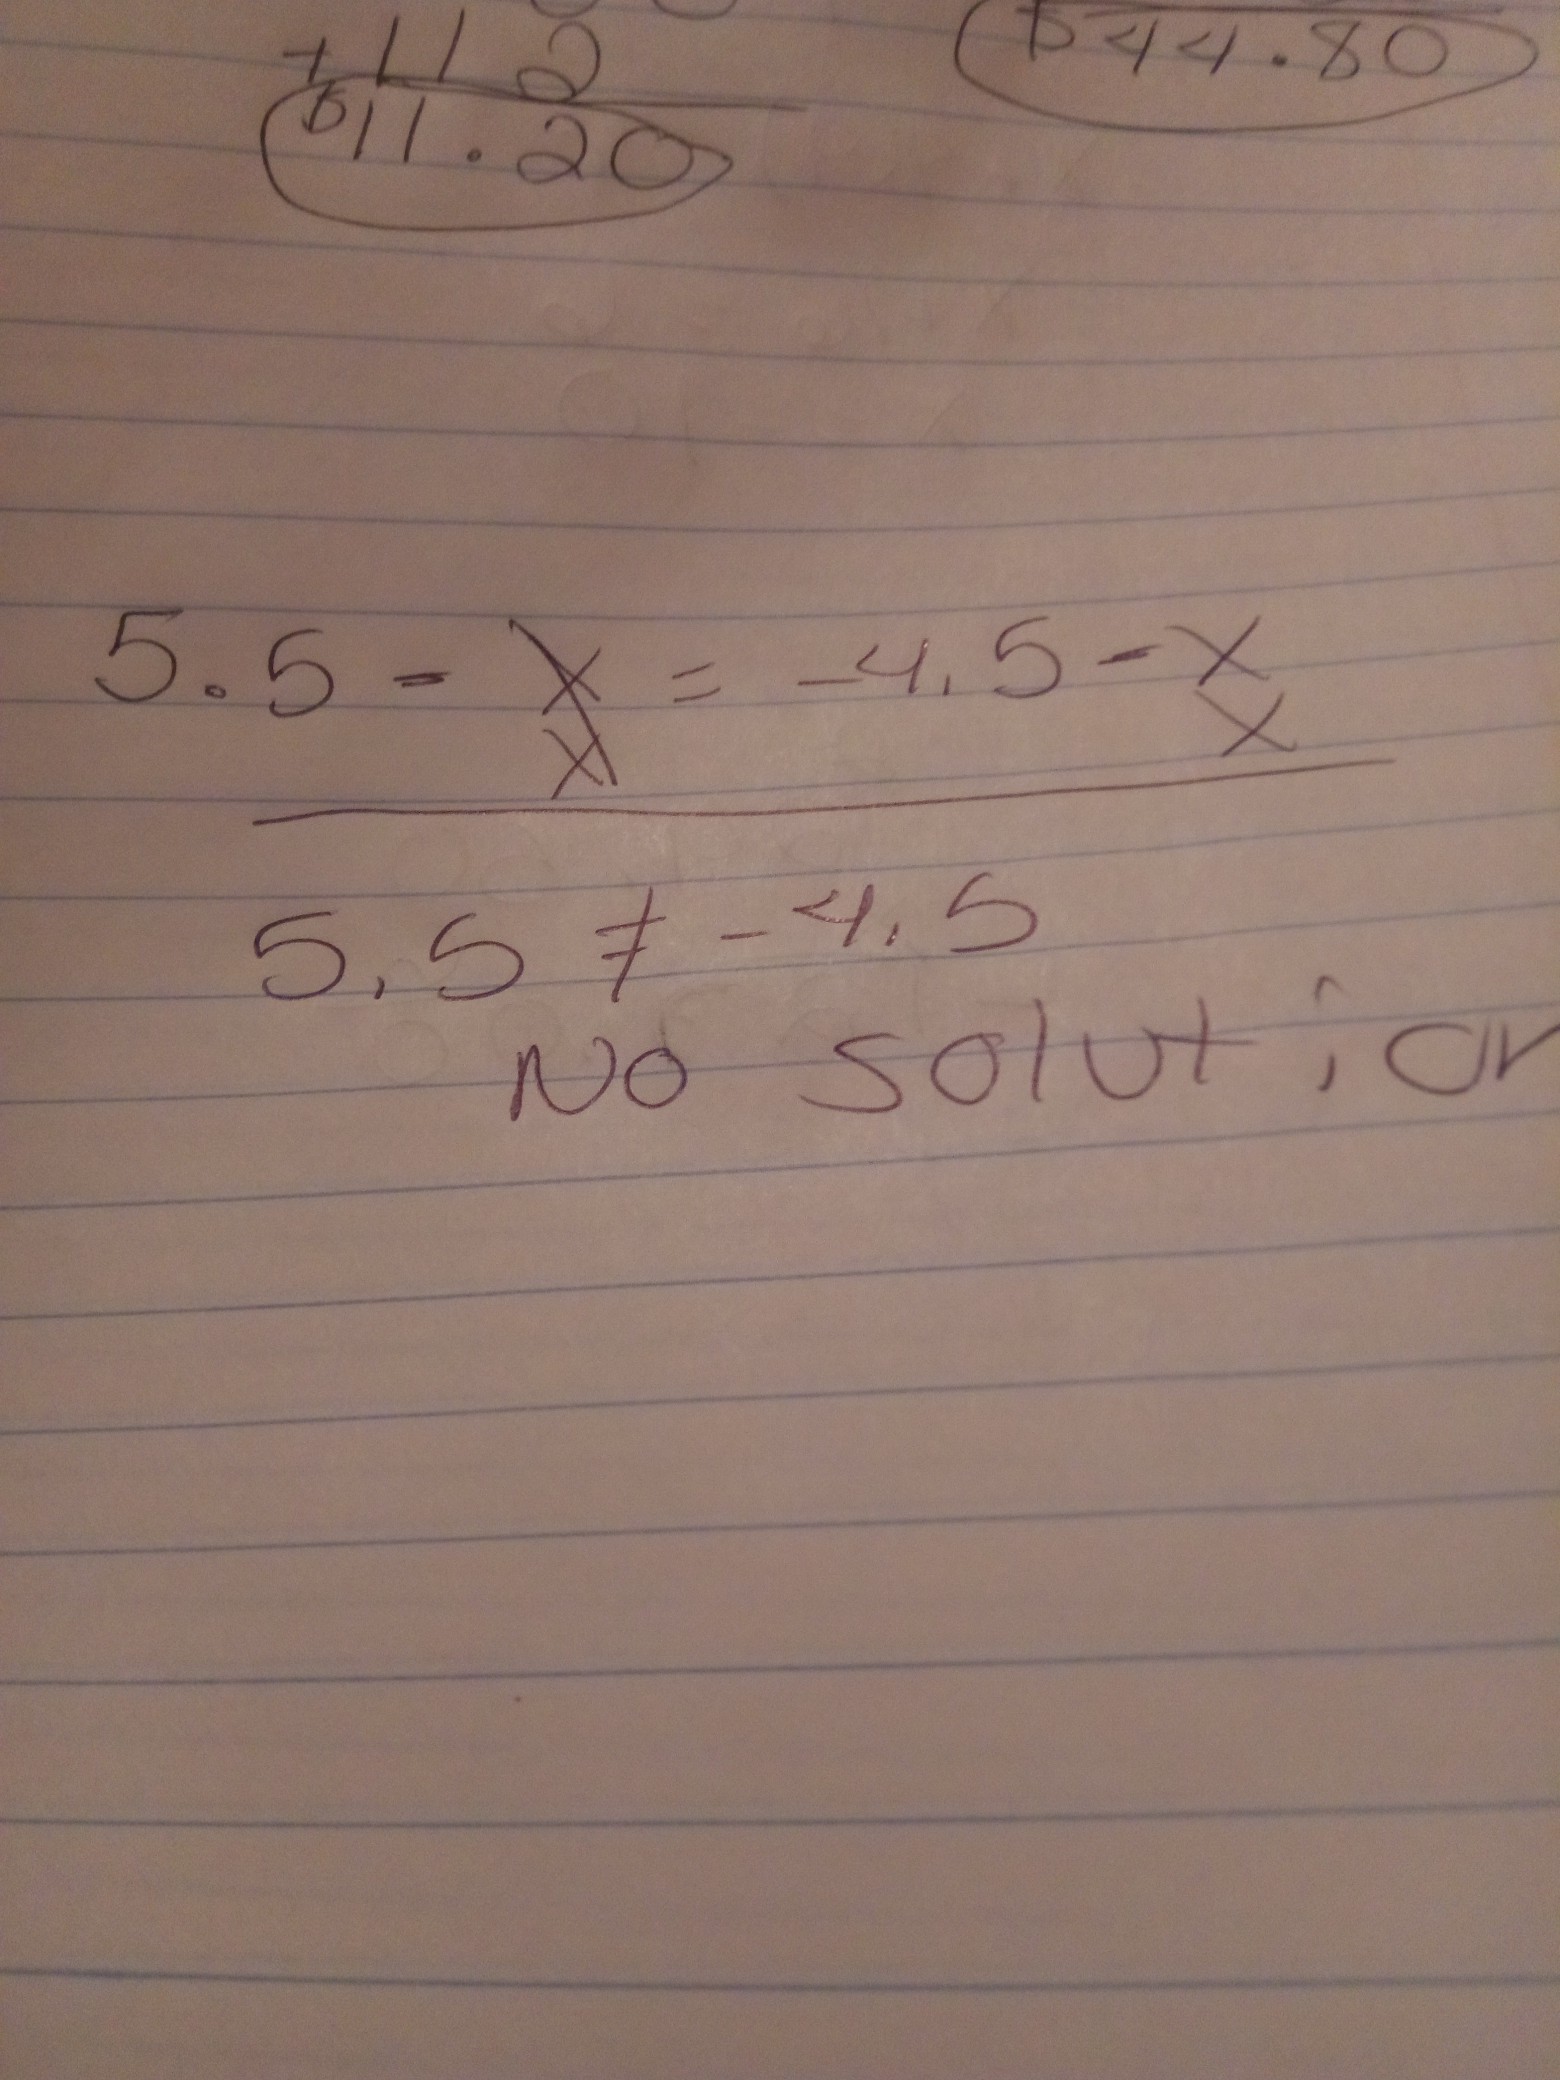 +112
$11.20
$44.80
5.5 - x = -4.5 - x
x x
5.5 ≠ -4.5
No solution